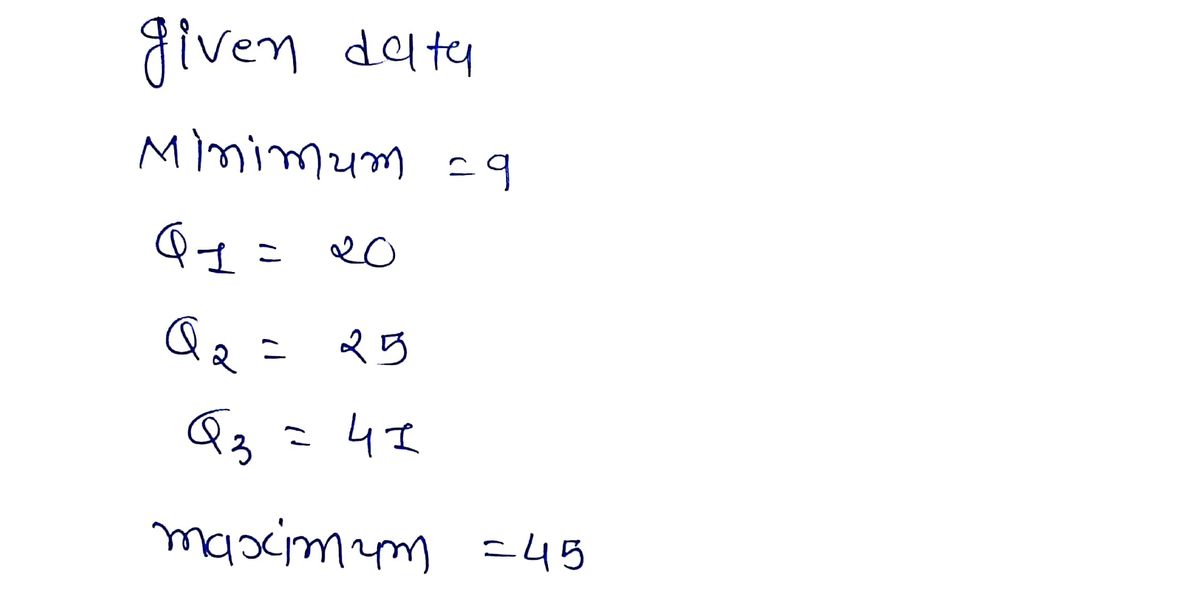 given data
Minimum = 9
Q1 = 20
Q2 = 25
Q3 = 41
maximum = 45